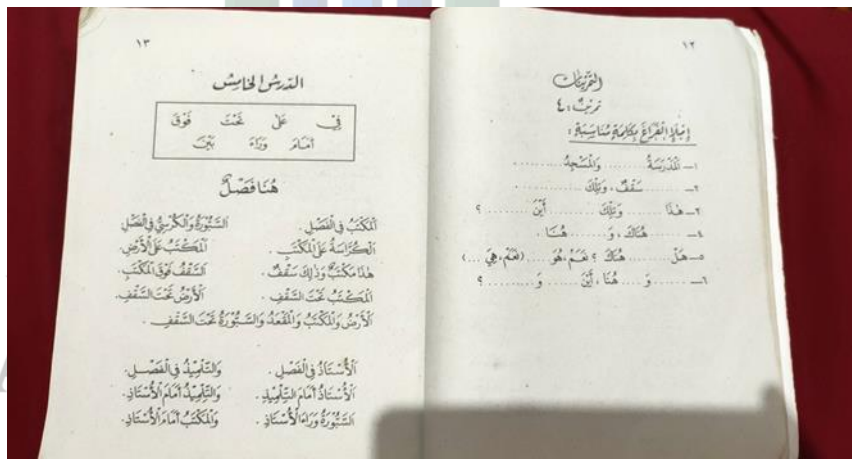 ١٢
التمرينات
تمرين : ٤
إملإ الفراغ بكلمة مناسبة :
١ــ المدرسة ......... والمسجد .........
٢ــ ......... سقف ، وتلك ......... .
٣ــ هذا ......... وتلك ......... أين ......... ؟
٤ــ ......... هناك ، و ......... هنا .
٥ــ هل ......... هناك ؟ نعم ، هو ..... (نعم ، هي ....)
٦ــ ......... و ..... هنا ، أين ......... و ......... ؟
١٣
الدرس الخامس
في على تحت فوق
أمام وراء بين
هنا فصل
المكتب في الفصل . السبورة والكرسي في الفصل
الكراسة على المكتب . المكتب على الأرض .
هذا مكتب وذلك سقف . السقف فوق المكتب .
المكتب تحت السقف . الأرض تحت السقف .
الأرض والمكتب والمقعد والسبورة تحت السقف .
الأستاذ في الفصل . والتلميذ في الفصل .
الأستاذ أمام التلميذ . والتلميذ أمام الأستاذ .
السبورة وراء الأستاذ . والمكتب أمام الأستاذ .